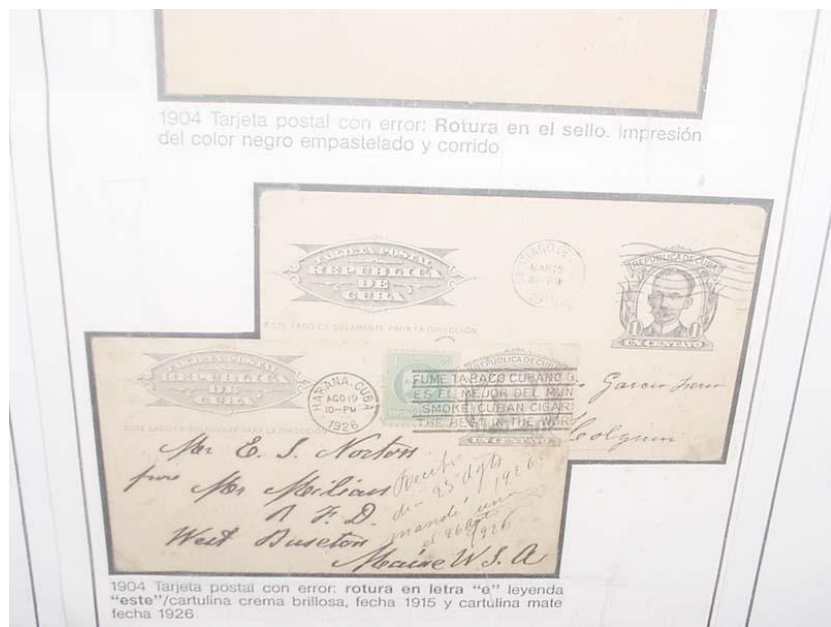 1904 Tarjeta postal con error: Rotura en el sello. Impresión
del color negro empastelado y corrido
TARJETA POSTAL
REPUBLICA
DE
CUBA
ESTE LADO ES SOLAMENTE PARA LA DIRECCIÓN
SANTIAGO DE
MAR 15
REPUBLICA DE CUBA
1 1
UN CENTAVO
TARJETA POSTAL
REPUBLICA
DE
CUBA
ESTE LADO ES SOLAMENTE PARA LA DIRECCIÓN
HABANA, CUBA
AGO 19
10-PM
1926
REPUBLICA DE CUBA
FUME TABACO CUBANO
ES EL MEJOR DEL MUN
SMOKE CUBAN CIGAR
THE BEST IN THE WOR
UN CENTAVO
Garcia
Holguin
Mr E. S. Norton
from Mr Milian
R. F. D.
West
Maine U.S.A
Recibi
dia 25 Agto
1926
mandé una
el 26 Agt
1926
1904 Tarjeta postal con error: rotura en letra “e” leyenda
“este”/cartulina crema brillosa, fecha 1915 y cartulina mate
fecha 1926